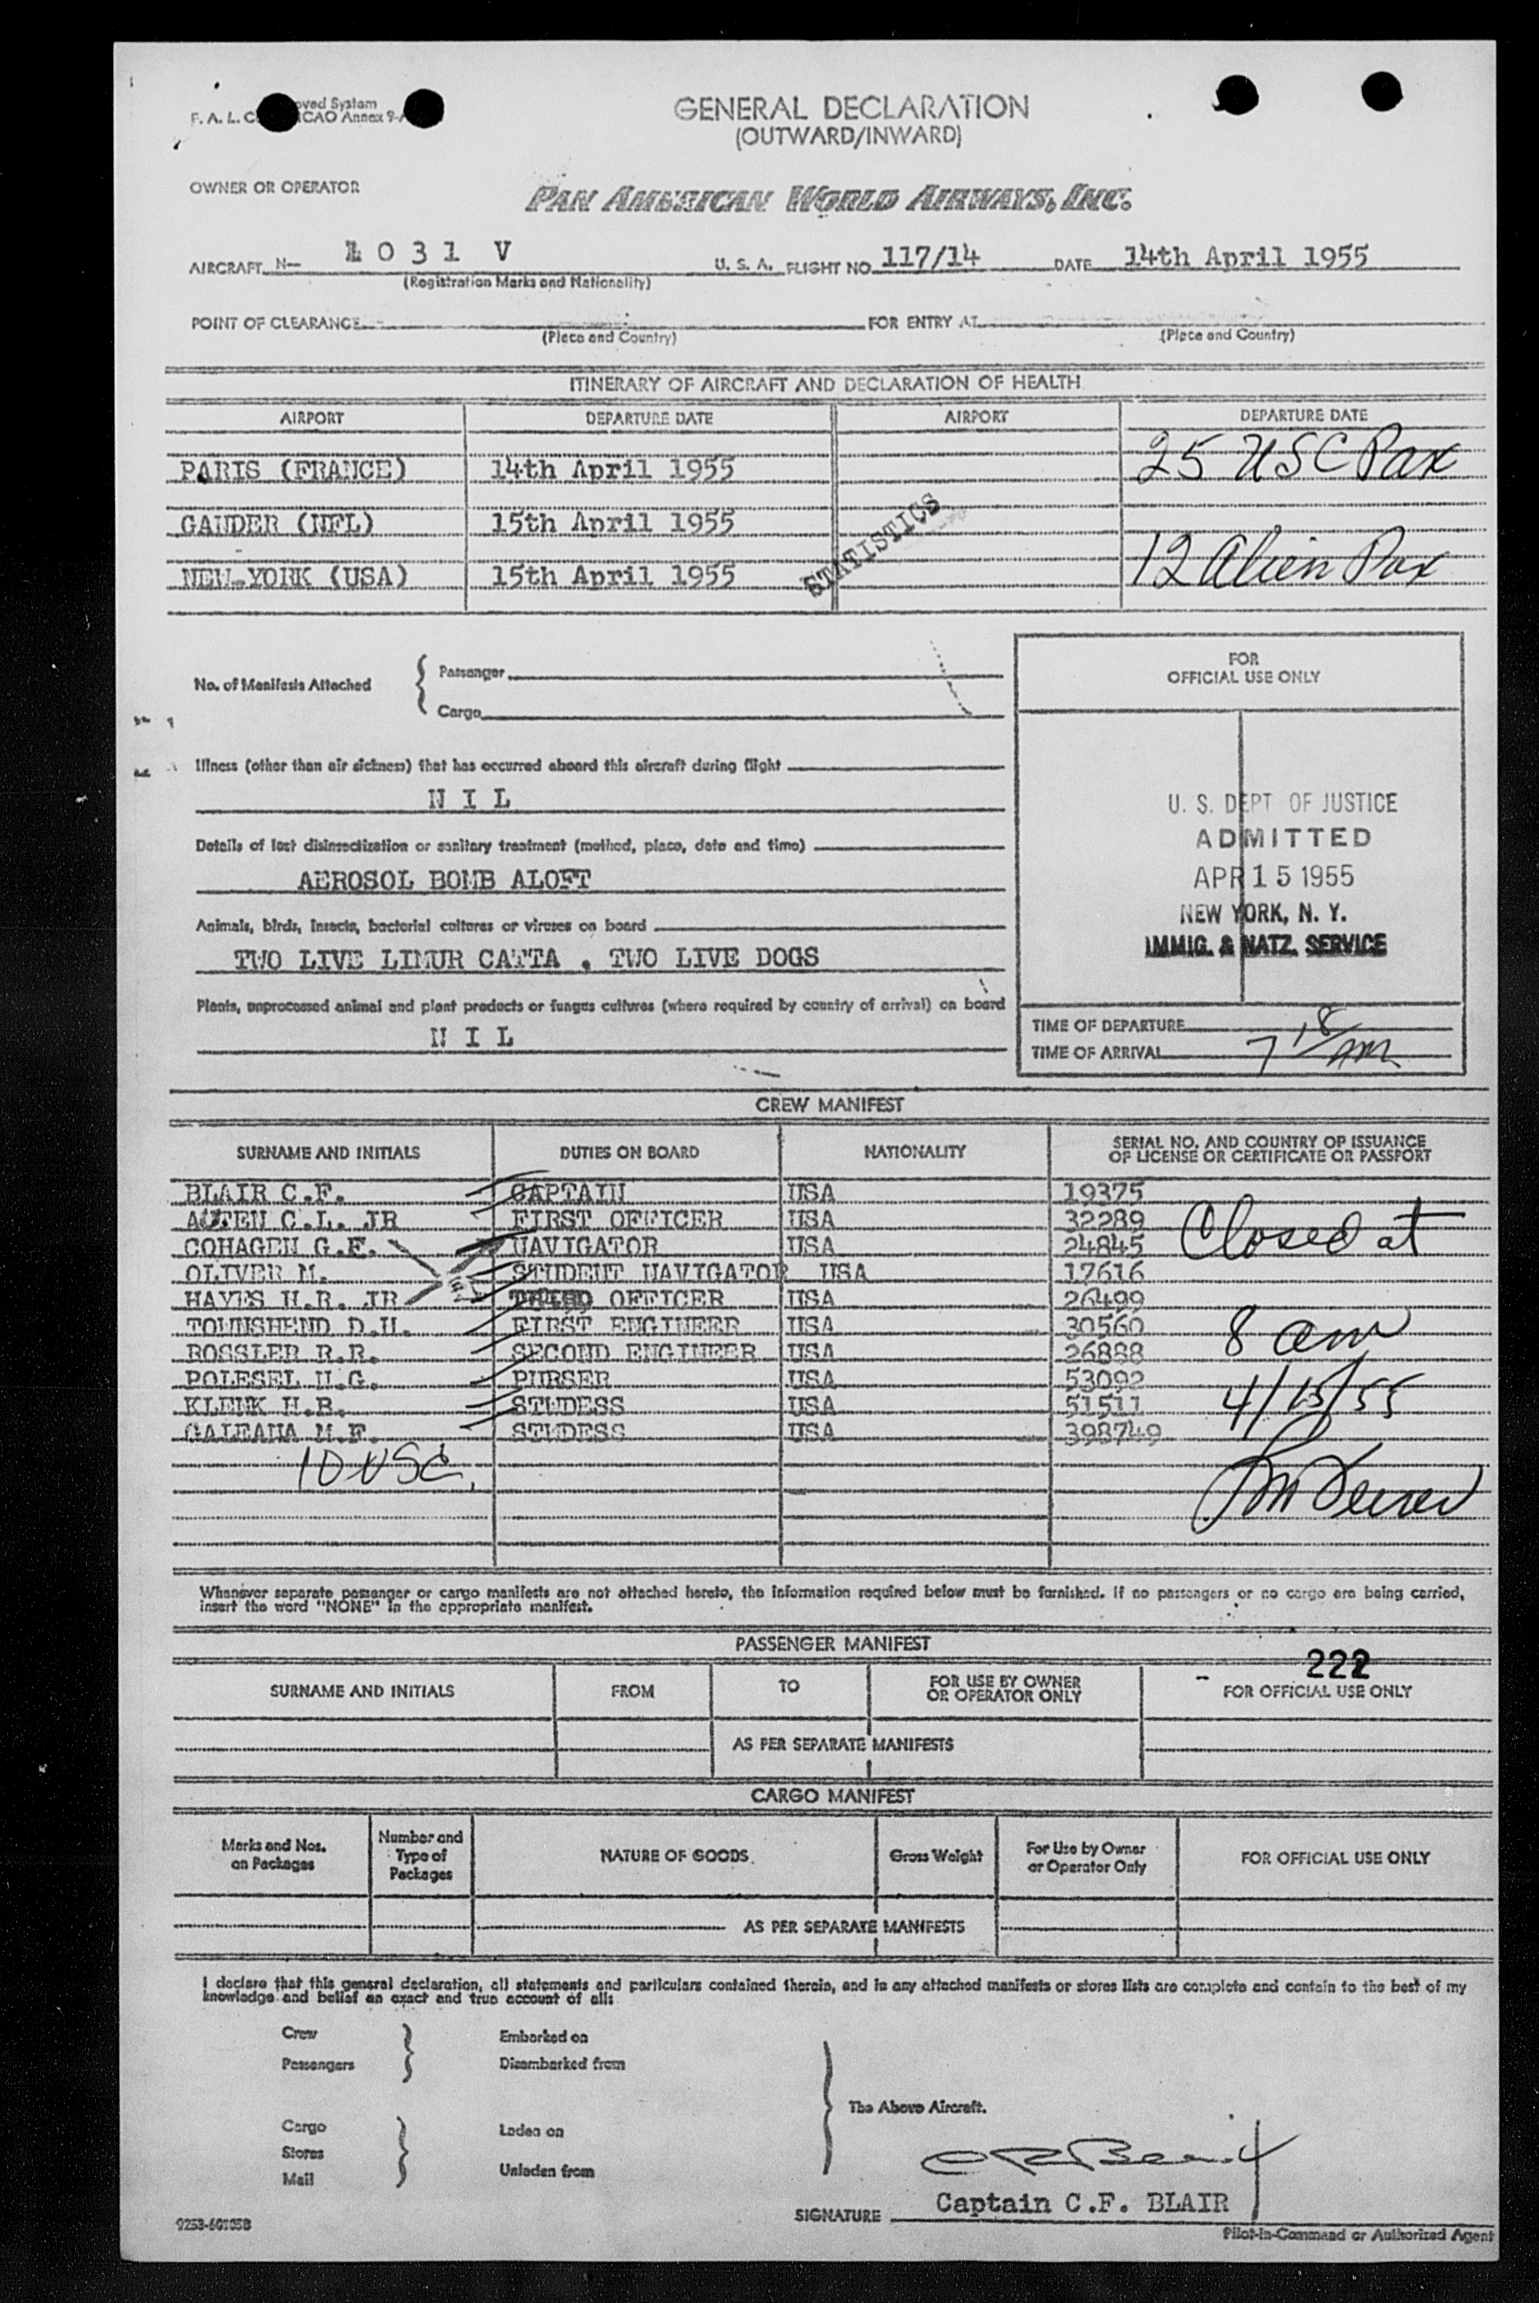 GENERAL DECLARATION
(OUTWARD/INWARD)
OWNER OR OPERATOR
PAN AMERICAN WORLD AIRWAYS, INC.
AIRCRAFT N- 1031 V U. S. A. FLIGHT NO. 117/14 DATE 14th April 1955
(Registration Marks and Nationality)
POINT OF CLEARANCE FOR ENTRY AT
(Place and Country) (Place and Country)
ITINERARY OF AIRCRAFT AND DECLARATION OF HEALTH
AIRPORT DEPARTURE DATE AIRPORT DEPARTURE DATE
PARIS (FRANCE) 14th April 1955 25 USC Pax
GANDER (NFL) 15th April 1955
STATISTICS
NEW.YORK (USA) 15th April 1955 12 Alien Pax
No. of Manifests Attached
Passenger
Cargo
Illness (other than air sickness) that has occurred aboard this aircraft during flight
N I L
Details of last disinsectization or sanitary treatment (method, place, date and time)
AEROSOL BOMB ALOFT
Animals, birds, insects, bacterial cultures or viruses on board
TWO LIVE LIMUR CATTA . TWO LIVE DOGS
Plants, unprocessed animal and plant products or fungus cultures (where required by country of arrival) on board
N I L
FOR
OFFICIAL USE ONLY
U. S. DEPT OF JUSTICE
ADMITTED
APR 15 1955
NEW YORK, N. Y.
IMMIG. & NATZ. SERVICE
TIME OF DEPARTURE
TIME OF ARRIVAL 7 18
CREW MANIFEST
SURNAME AND INITIALS DUTIES ON BOARD NATIONALITY SERIAL NO. AND COUNTRY OF ISSUANCE
OF LICENSE OR CERTIFICATE OR PASSPORT
BLAIR C.F. CAPTAIN USA 19375
AUTEN C.L. JR FIRST OFFICER USA 32289
COHAGEN G.E. NAVIGATOR USA 24845
OLIVER M. STUDENT NAVIGATOR USA 17616
HAYES H.R. JR THIRD OFFICER USA 26499
TOWNSHEND D.H. FIRST ENGINEER USA 30560
BOSSLER R.R. SECOND ENGINEER USA 26888
POLESEL U.G. PURSER USA 53092
KLENK H.B. STWDESS USA 51511
GALEANA M.F. STWDESS USA 398749
10 USC
Closed at
8 am
4/15/55
Whenever separate passenger or cargo manifests are not attached hereto, the information required below must be furnished. If no passengers or no cargo are being carried,
insert the word "NONE" in the appropriate manifest.
PASSENGER MANIFEST
222
SURNAME AND INITIALS FROM TO FOR USE BY OWNER
OR OPERATOR ONLY FOR OFFICIAL USE ONLY
AS PER SEPARATE MANIFESTS
CARGO MANIFEST
Marks and Nos.
on Packages
Number and
Type of
Packages
NATURE OF GOODS
Gross Weight
For Use by Owner
or Operator Only
FOR OFFICIAL USE ONLY
AS PER SEPARATE MANIFESTS
I declare that this general declaration, all statements and particulars contained therein, and in any attached manifests or stores lists are complete and contain to the best of my
knowledge and belief an exact and true account of all:
Crew Embarked on
Passengers Disembarked from
The Above Aircraft.
Cargo Laden on
Stores
Mail Unladen from
SIGNATURE Captain C.F. BLAIR
Pilot-in-Command or Authorized Agent